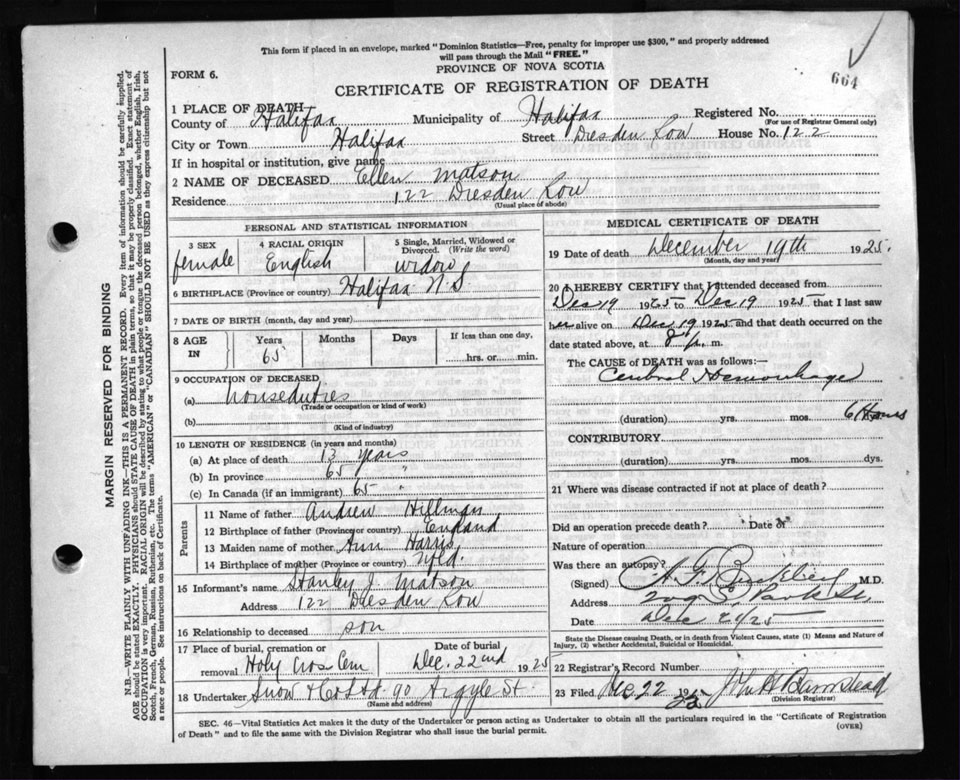 This form if placed in an envelope, marked "Dominion Statistics—Free, penalty for improper use $300," and properly addressed
will pass through the Mail "FREE."
PROVINCE OF NOVA SCOTIA
664
FORM 6.
CERTIFICATE OF REGISTRATION OF DEATH
1 PLACE OF DEATH
County of Halifax Municipality of Halifax Registered No.
(For use of Registrar General only)
City or Town Halifax Street Dresden Row House No. 122
If in hospital or institution, give name
2 NAME OF DECEASED Ellen Matson
Residence 122 Dresden Row
(Usual place of abode)
MARGIN RESERVED FOR BINDING
N.B.—WRITE PLAINLY WITH UNFADING INK—THIS IS A PERMANENT RECORD. Every item of information should be carefully supplied.
AGE should be stated EXACTLY. PHYSICIANS should STATE CAUSE OF DEATH in plain terms, so that it may be properly classified. Exact statement of
OCCUPATION is very important. RACIAL ORIGIN will be described by stating to what people or tongue the deceased person belonged, whether English, Irish,
Scotch, French, German, Russian, Ruthenian, etc. The terms "AMERICAN" or "CANADIAN" SHOULD NOT BE USED as they express citizenship but not
a race or people. See instructions on back of Certificate.
PERSONAL AND STATISTICAL INFORMATION
3 SEX
female
4 RACIAL ORIGIN
English
5 Single, Married, Widowed or
Divorced. (Write the word)
widow
6 BIRTHPLACE (Province or country) Halifax N S
7 DATE OF BIRTH (month, day and year)
8 AGE
IN
Years Months Days If less than one day,
65 hrs. or min.
9 OCCUPATION OF DECEASED
(a) Houseduties
(Trade or occupation or kind of work)
(b)
(Kind of industry)
10 LENGTH OF RESIDENCE (in years and months)
(a) At place of death 13 years
(b) In province 65 "
(c) In Canada (if an immigrant) 65 "
Parents
11 Name of father Andrew Hillman
12 Birthplace of father (Province or country) England
13 Maiden name of mother Ann Harris
14 Birthplace of mother (Province or country) Nfld.
15 Informant's name Stanley J. Matson
Address 122 Dresden Row
16 Relationship to deceased son
17 Place of burial, cremation or Date of burial
removal Holy Cros Cem Dec. 22nd 1925
18 Undertaker Snow & Co Ltd. 90 Argyle St.
(Name and address)
MEDICAL CERTIFICATE OF DEATH
19 Date of death December 19th 1925.
(Month, day and year)
20 I HEREBY CERTIFY that I attended deceased from
Dec 19 1925 to Dec 19 1925 that I last saw
her alive on Dec 19 1925 and that death occurred on
date stated above, at 8 P. m.
The CAUSE of DEATH was as follows:—
Cerebral Hemorrhage
(duration) yrs. mos. 6 Hours
CONTRIBUTORY
(duration) yrs. mos. dys.
21 Where was disease contracted if not at place of death?
Did an operation precede death? Date of
Nature of operation
Was there an autopsy?
(Signed) M.D.
Address 209 S. Park St.
Date Dec 2/25
State the Disease causing Death, or in death from Violent Causes, state (1) Means and Nature of
Injury, (2) whether Accidental, Suicidal or Homicidal.
22 Registrar's Record Number
23 Filed Dec. 22 192
(Division Registrar)
SEC. 46—Vital Statistics Act makes it the duty of the Undertaker or person acting as Undertaker to obtain all the particulars required in the "Certificate of Registration
of Death" and to file the same with the Division Registrar who shall issue the burial permit.
(OVER)